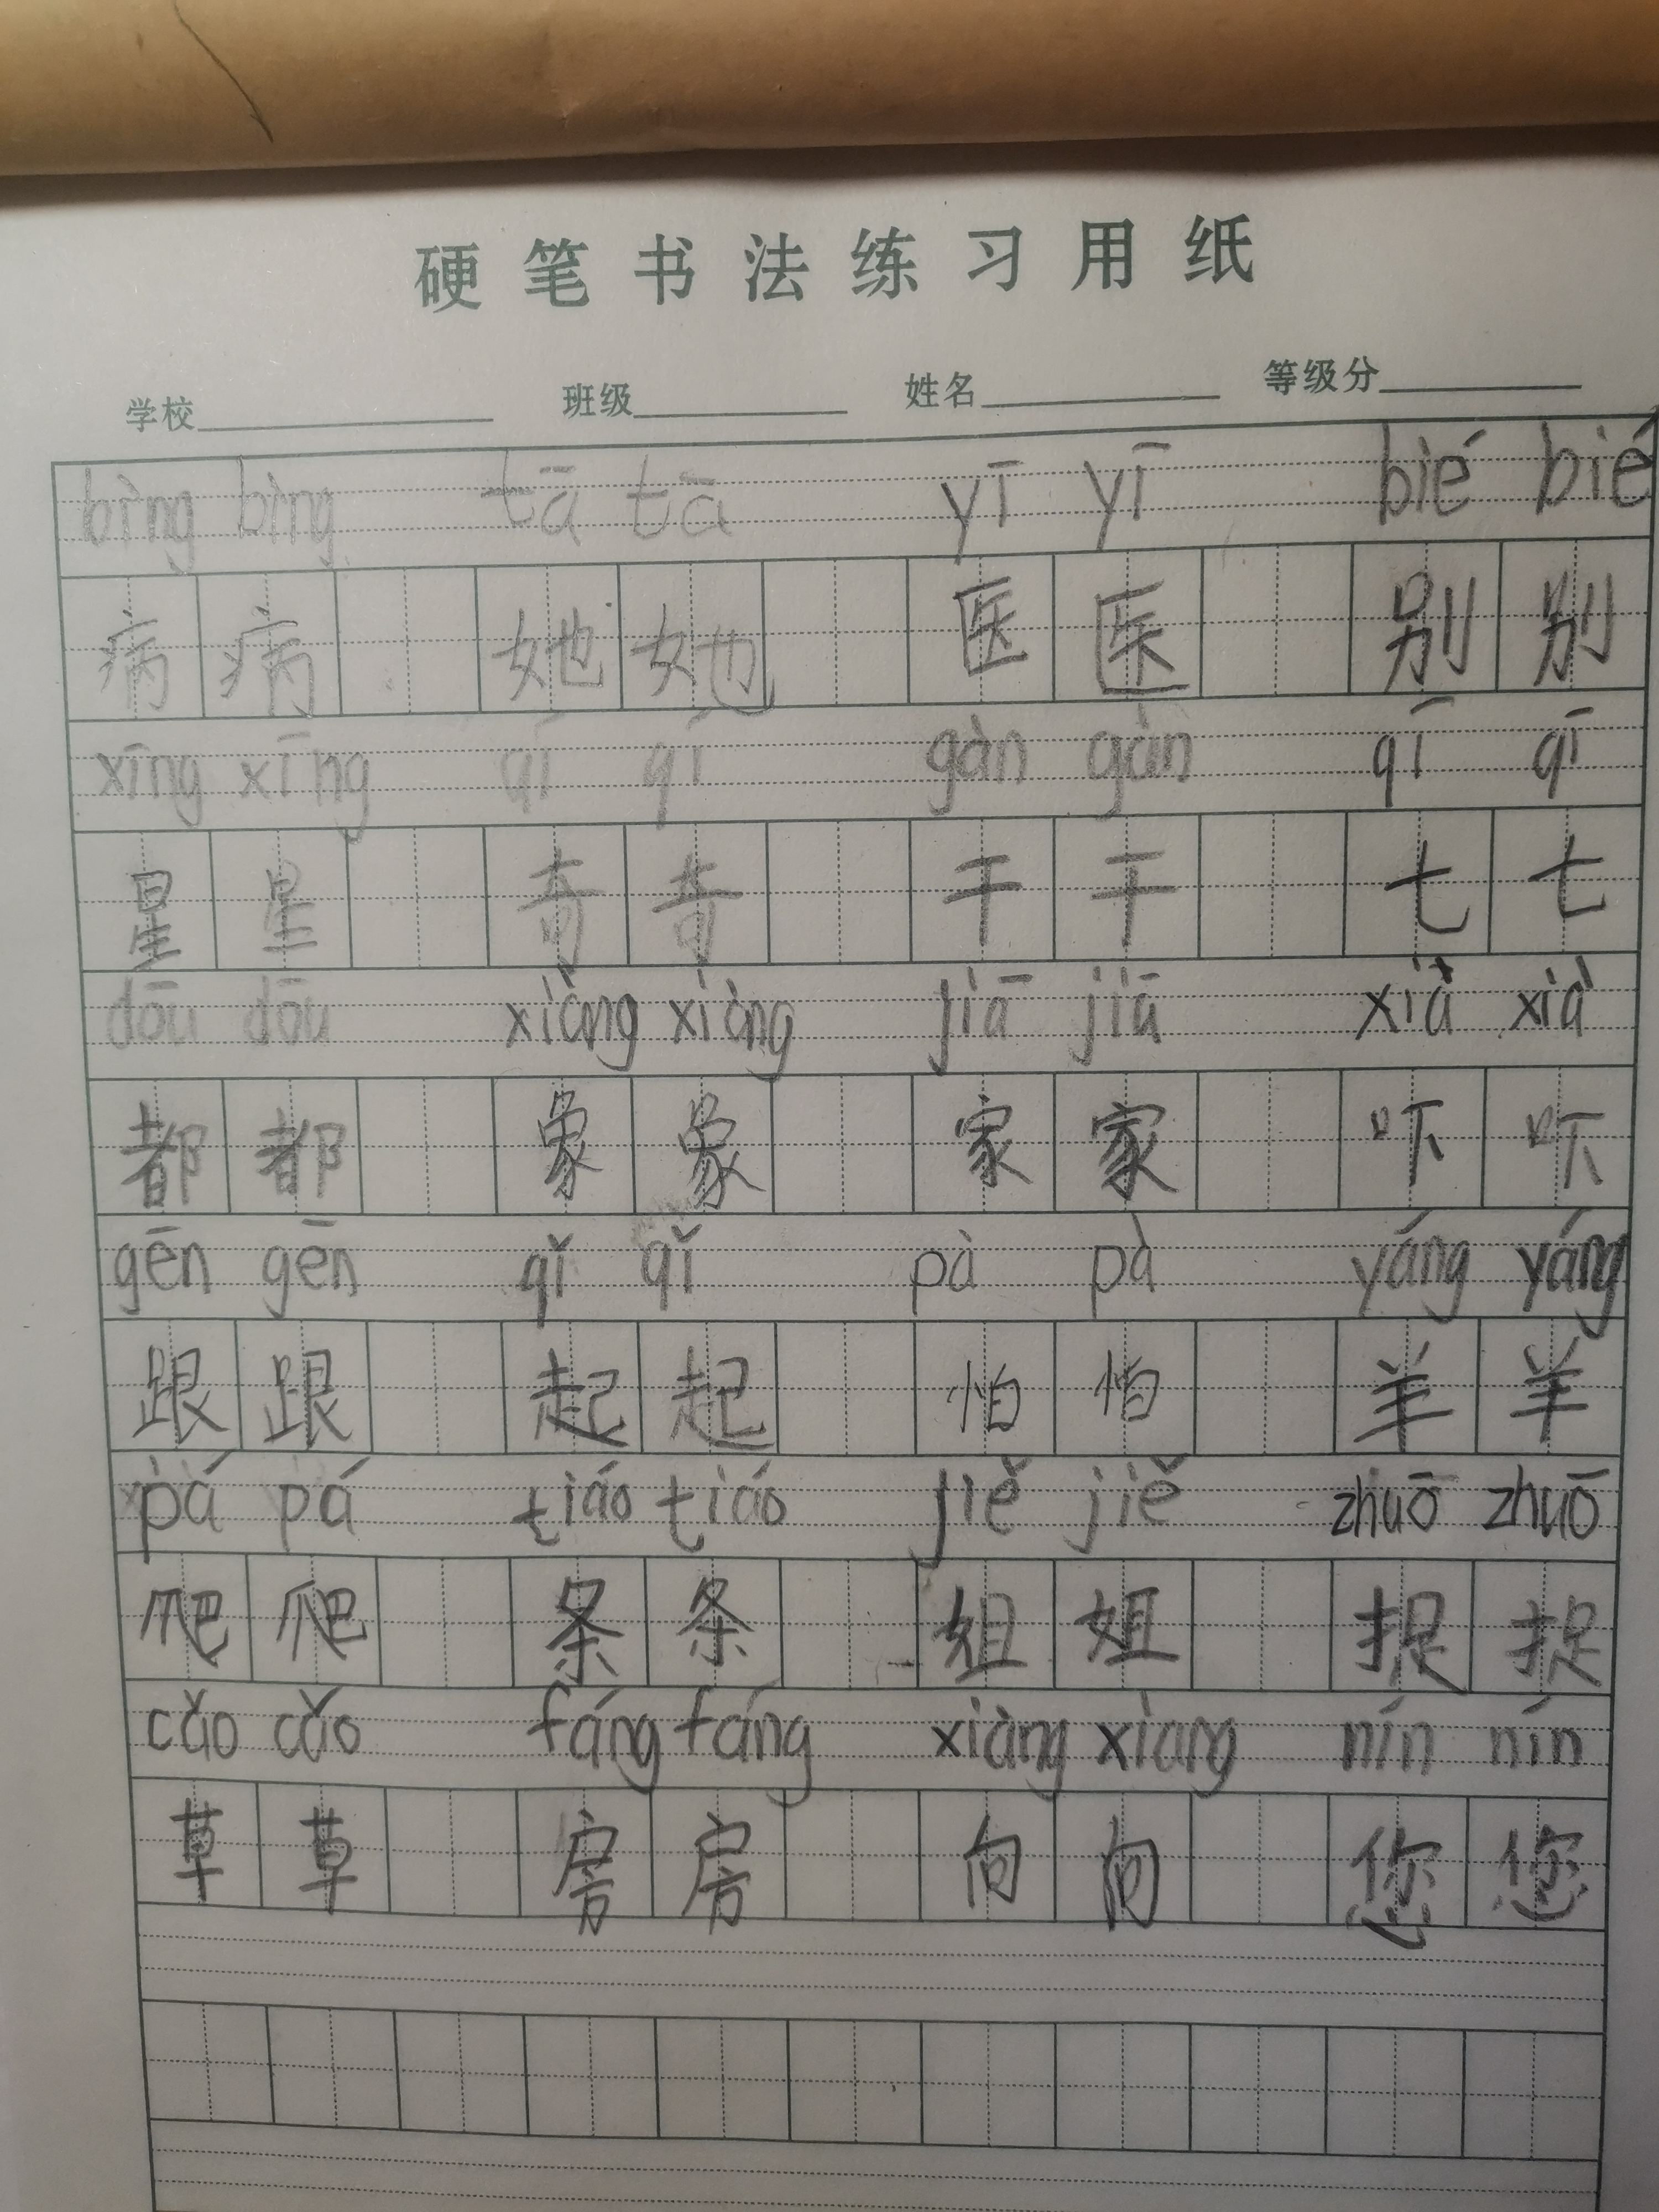 硬笔书法练习用纸
学校 班级 姓名 等级分
bìng bìng tā tā yī yī bié bié
病 病 她 她 医 医 别 别
xīng xīng qí qí gàn gàn qī qī
星 星 奇 奇 干 干 七 七
dōu dōu xiàng xiàng jiā jiā xià xià
都 都 象 象 家 家 吓 吓
gēn gēn qǐ qǐ pà pà yáng yáng
跟 跟 起 起 怕 怕 羊 羊
pá pá tiáo tiáo jiě jiě zhuō zhuō
爬 爬 条 条 姐 姐 捉 捉
cǎo cǎo fáng fáng xiàng xiang nín nín
草 草 房 房 向 向 您 您